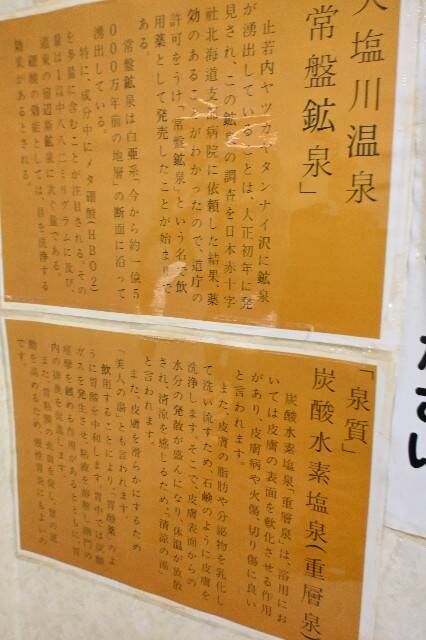 天塩川温泉
「常盤鉱泉」
止若内ヤツカンタンナイ沢に鉱泉
が湧出していることは、大正初年に発
見され、この鉱泉の調査を日本赤十字
社北海道支部病院に依頼した結果、薬
効のあることがわかったので、道庁の
許可をうけ、「常盤鉱泉」という名で飲
用薬として発売したことが始まりで
ある。
常盤鉱泉は白亜系「今から約一億5
000万年前の地層」の断面に沿って
湧出している。
特に、成分中にメタ硼酸(HBO2)
を多量に含むことが注目される。その
量は1L中八八二ミリグラムに及び、
硼酸の効能としては、目を洗浄する
効果があるとされる。
「泉質」
炭酸水素塩泉(重層泉)
炭酸水素塩泉「重層泉」は、浴用にお
いては皮膚の表面を軟化させる作用
があり、皮膚病や火傷、切り傷に良い
と言われます。
また、皮膚の脂肪や分泌物を乳化し
て洗い流すため、石鹸のように皮膚を
洗浄します。そこで、皮膚表面からの
水分の発散が盛んになり、体温が放散
され、清涼を感じるため、「清涼の湯」
と言われます。
また、皮膚を滑らかにするため
「美人の湯」とも言われます。
飲用することにより、「胃酸薬」のよ
うに胃酸を中和します。胃中では炭酸
ガスを発生させ、粘液を溶解し幽門の
です。
ださい